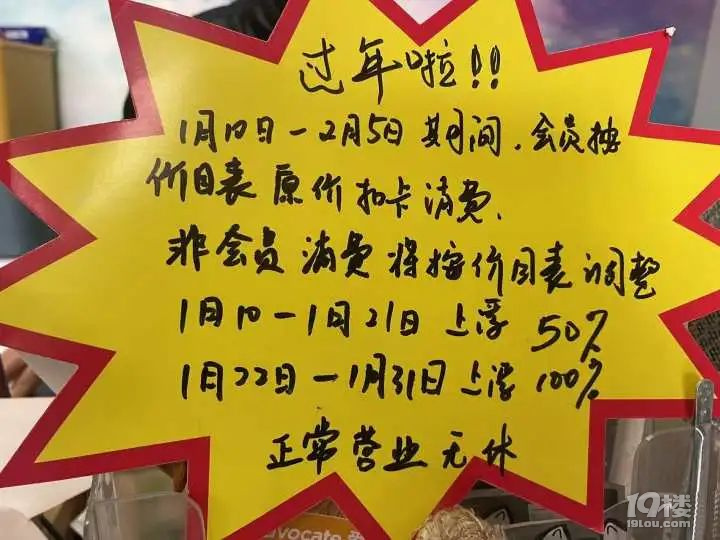 过年啦!!
1月10日-2月5日期间.会员按
价目表原价扣卡消费.
非会员消费将按价目表调整
1月10-1月21日上浮50%
1月22日-1月31日上浮100%
正常营业无休
vocato
19楼
19lou.com